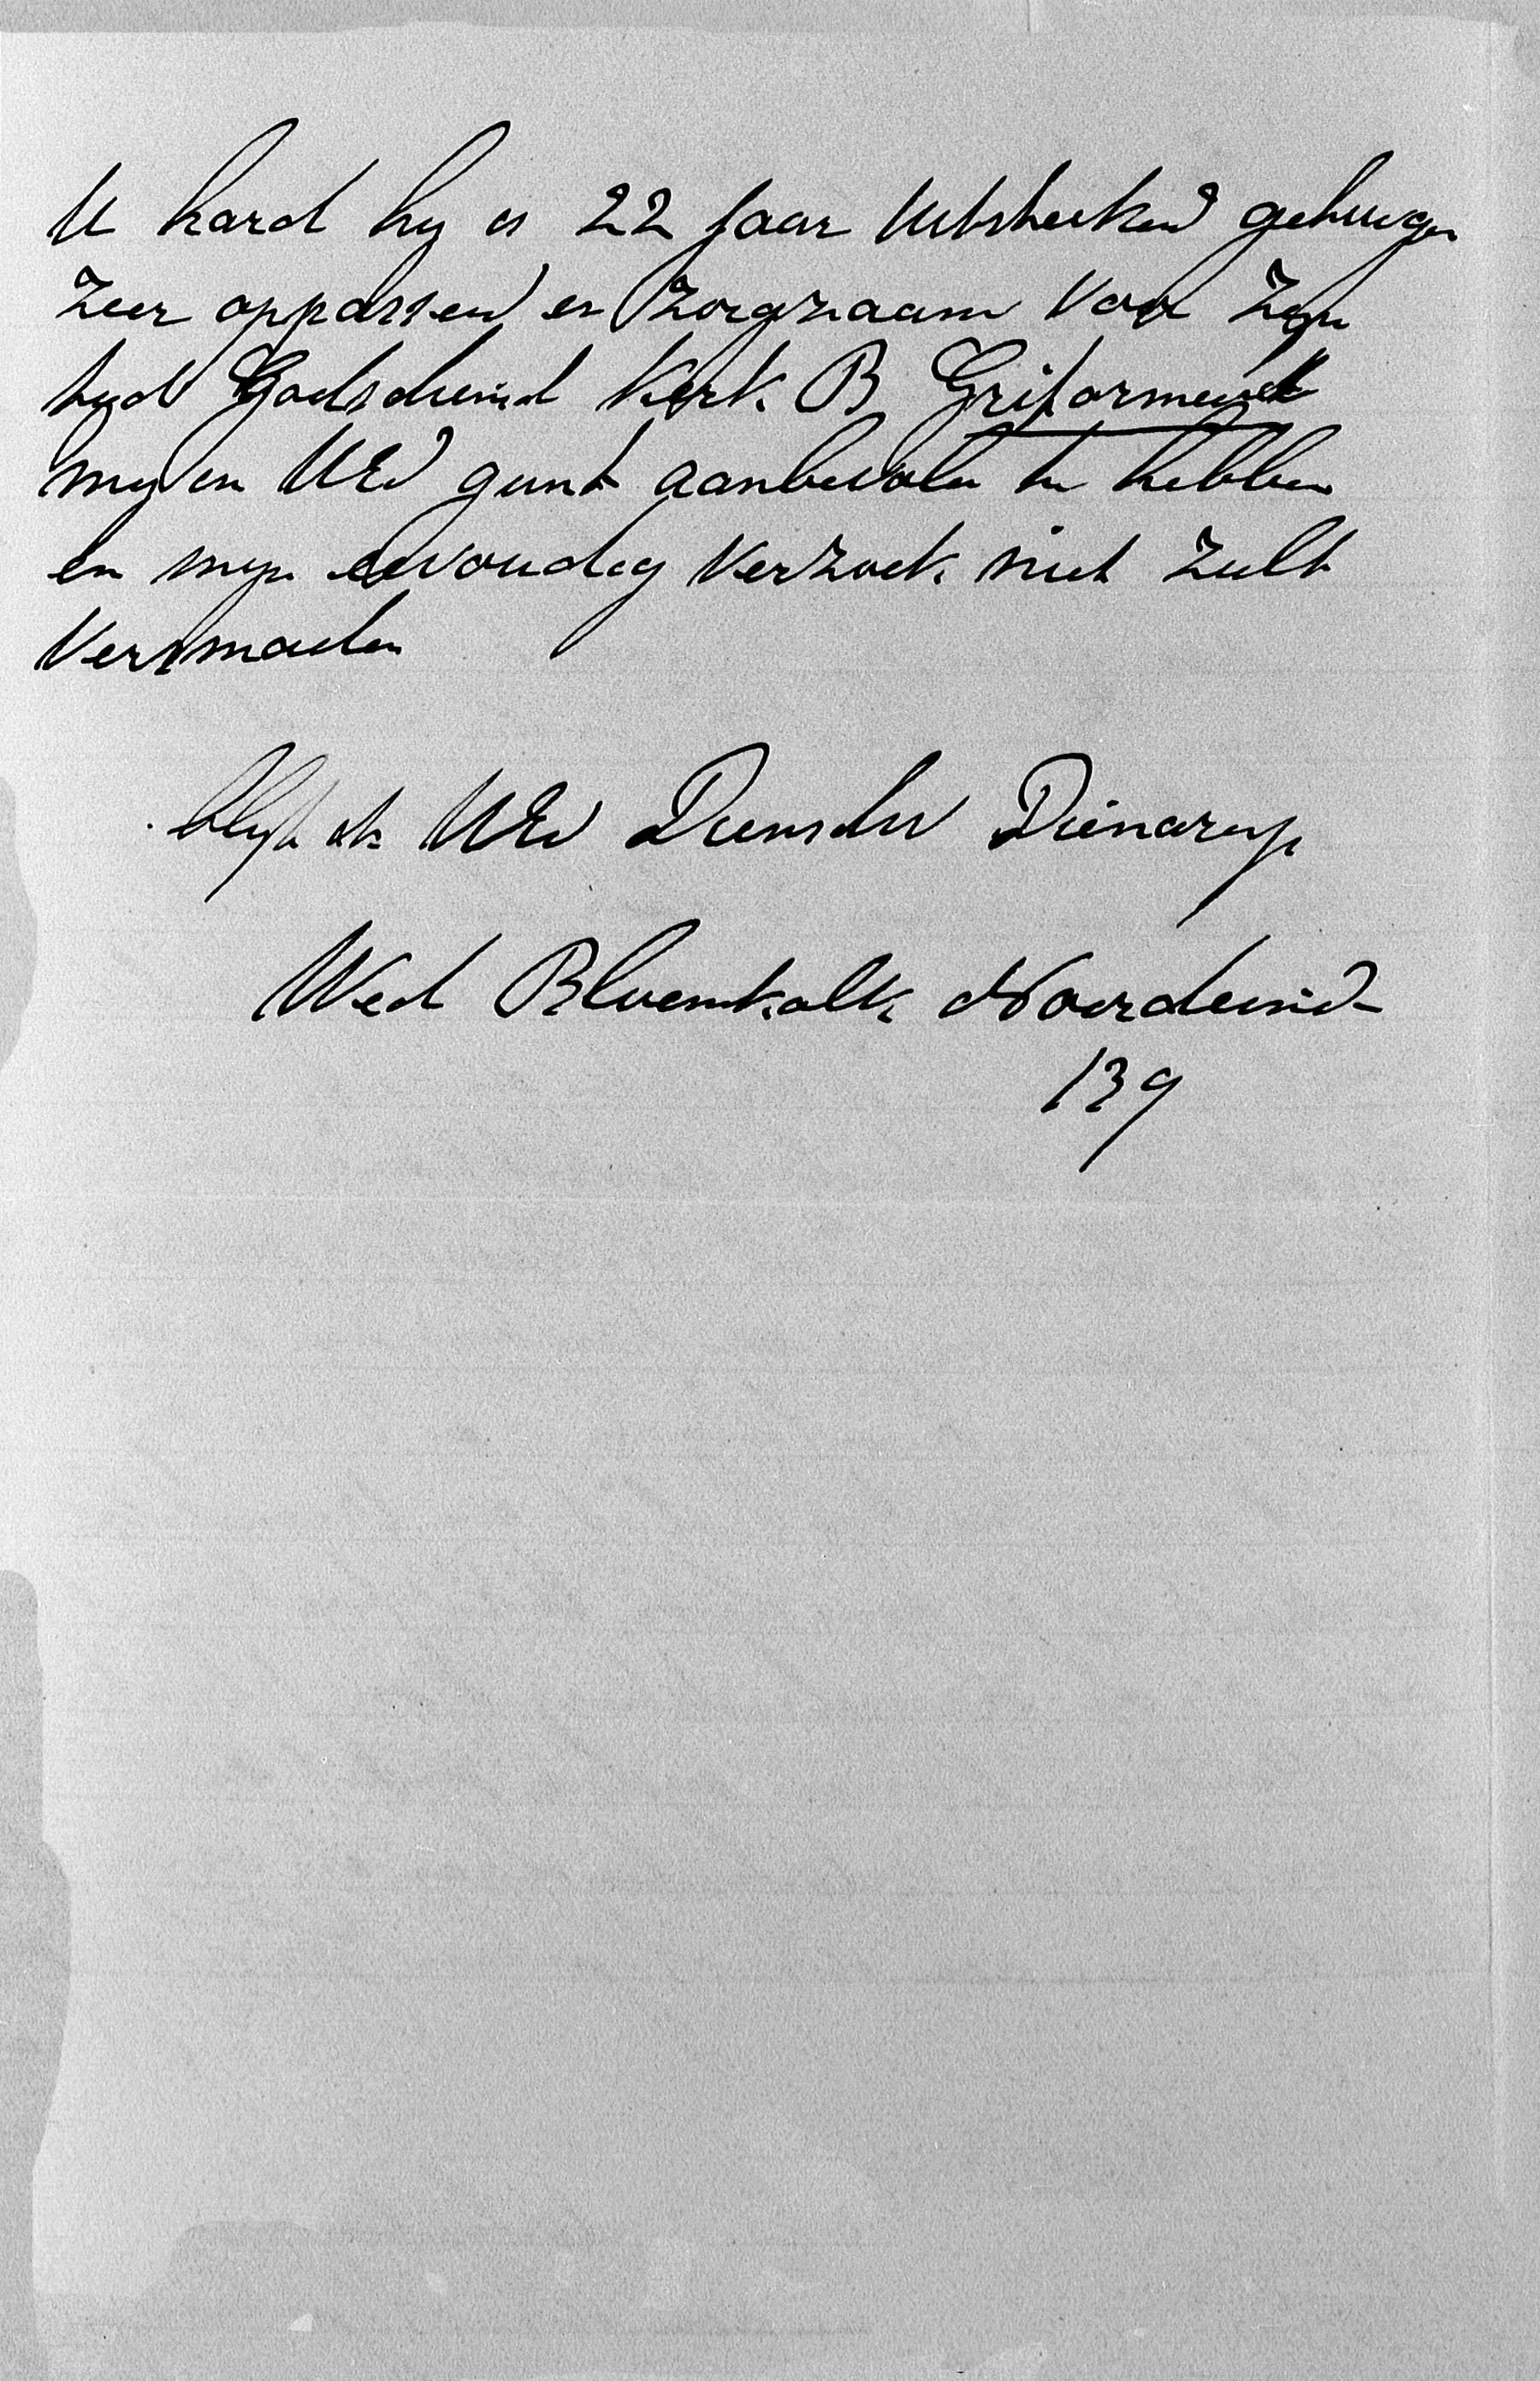 U hard hy is 22 Jaar Uitsteekend getuigen
Zeer oppassend en Zorgzaam Voor Zyn
tyd Godsdienst Kerk. B Griformeerd
my in UEd gunst aanbevolen te hebben
en myn eenvoudig Verzoek niet Zult
Versmaden
blyf ik UEd Dienstw Dienares
Wed Bloemkolk Noordeind
139